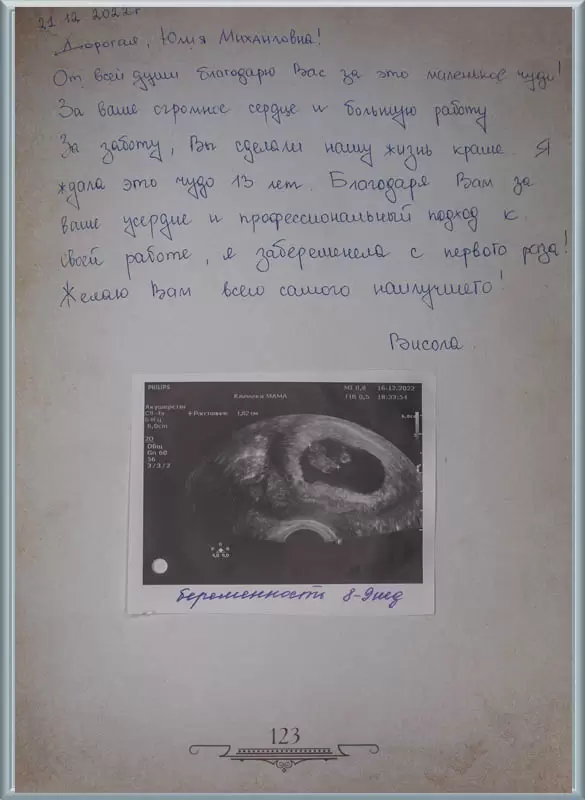 21.12.2022г
Дорогая, Юлия Михайловна!
От всей души благодарю Вас за это маленькое чудо!
За ваше огромное сердце и большую работу
За заботу, Вы сделали нашу жизнь краше. Я
ждала это чудо 13 лет. Благодаря Вам за
ваше усердие и профессиональный подход к
своей работе, я забеременела с первого раза!
Желаю Вам всего самого наилучшего!
Висола.
PHILIPS
Клиника МАМА
MI 0,8 16-12-2022
TIB 0,5 18:33:54
Акушерство
C9-4v
64Гц
6,0cm
+ Расстояние 1,82 см
2D
Общ
Gn 60
56
3/3/2
беременность 8-9нед
123